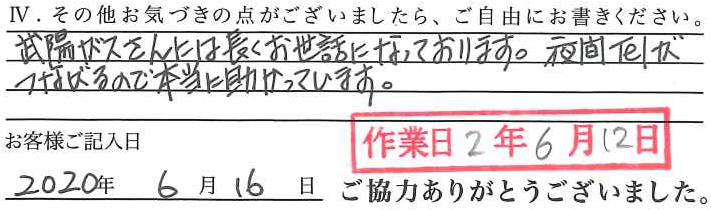 Ⅳ．その他お気づきの点がございましたら、ご自由にお書きください。
武陽ガスさんには長くお世話になっております。夜間Telが
つながるので本当に助かっています。
お客様ご記入日
作業日2年6月12日
2020年 6月16日 ご協力ありがとうございました。